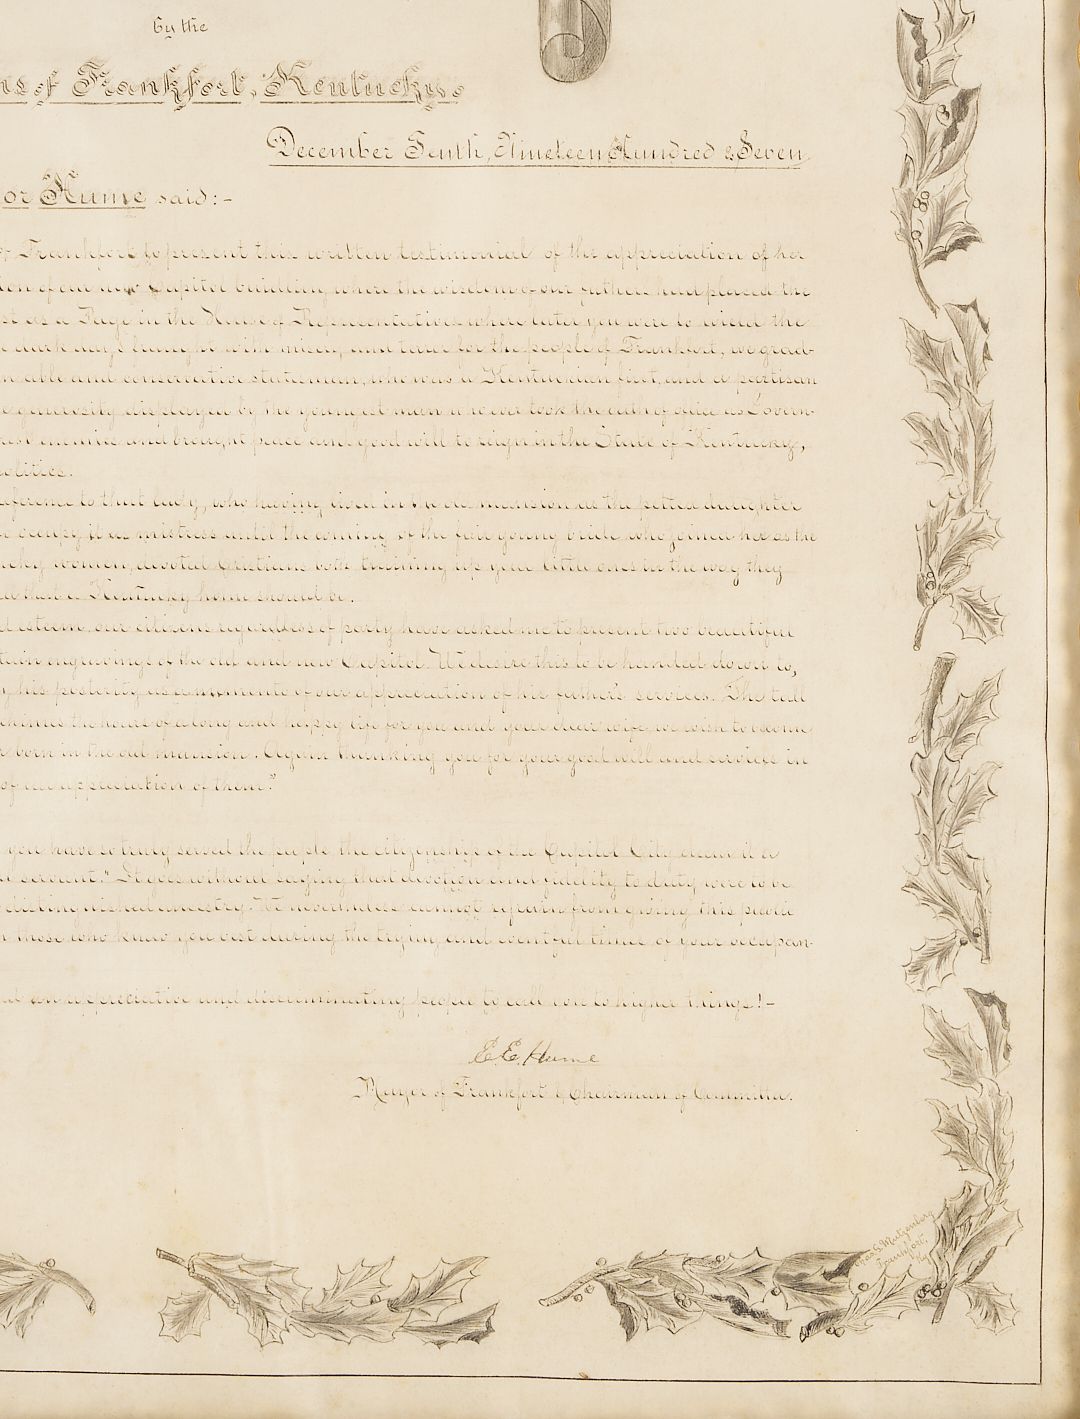 by the
of Frankfort, Kentucky.
December Tenth, Nineteen Hundred & Seven
or Hume said:-
Frankfort to present this written testimonial of the appreciation of her
ion of our new Capitol building where the wisdom of our fathers had placed the
as a Page in the House of Representatives where later you were to wield the
dark days fraught with misery and tears for the people of Frankfort, we grad-
able and conservative statesman, who was a Kentuckian first, and a partisan
generosity displayed by the youngest man who ever took the oath of office as Govern-
enemies and brought peace and good will to reign in the State of Kentucky,
olitics.
eference to that lady, who having lived in the old mansion as the petted daughter
occupy it as mistress until the coming of the fair young bride who joined her as the
women, devoted Christians both training up your little ones in the way they
that a Kentucky home should be.
d esteem, our citizens regardless of party have asked me to present two beautiful
engravings of the old and new Capitol. We desire this to be handed down to,
his posterity as a memento of our appreciation of his father's services. The tall
chimes the hours of a long and happy life for you and your dear wife, we wish to become
born in the old mansion. Again thanking you for your good will and services in
of our appreciation of them."
you have so truly served the people, the citizenship of the Capitol City deem it a
servant." It goes without saying that devotion and fidelity to duty were to be
distinguished ancestry. We nevertheless cannot refrain from giving this public
those who knew you best during the trying and eventful times of your occupan-
an appreciative and discriminating people to call you to higher things!-
E. E. Hume
Mayor of Frankfort & Chairman of Committee.
Frankfort,
Ky.